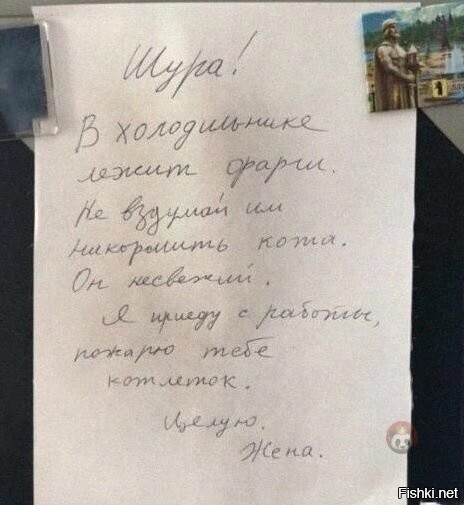 Шура!
В холодильнике
лежит фарш.
Не вздумай им
накормить кота.
Он несвежий.
Я приеду с работы,
пожарю тебе
котлеток.
Целую.
Жена.
Fishki.net